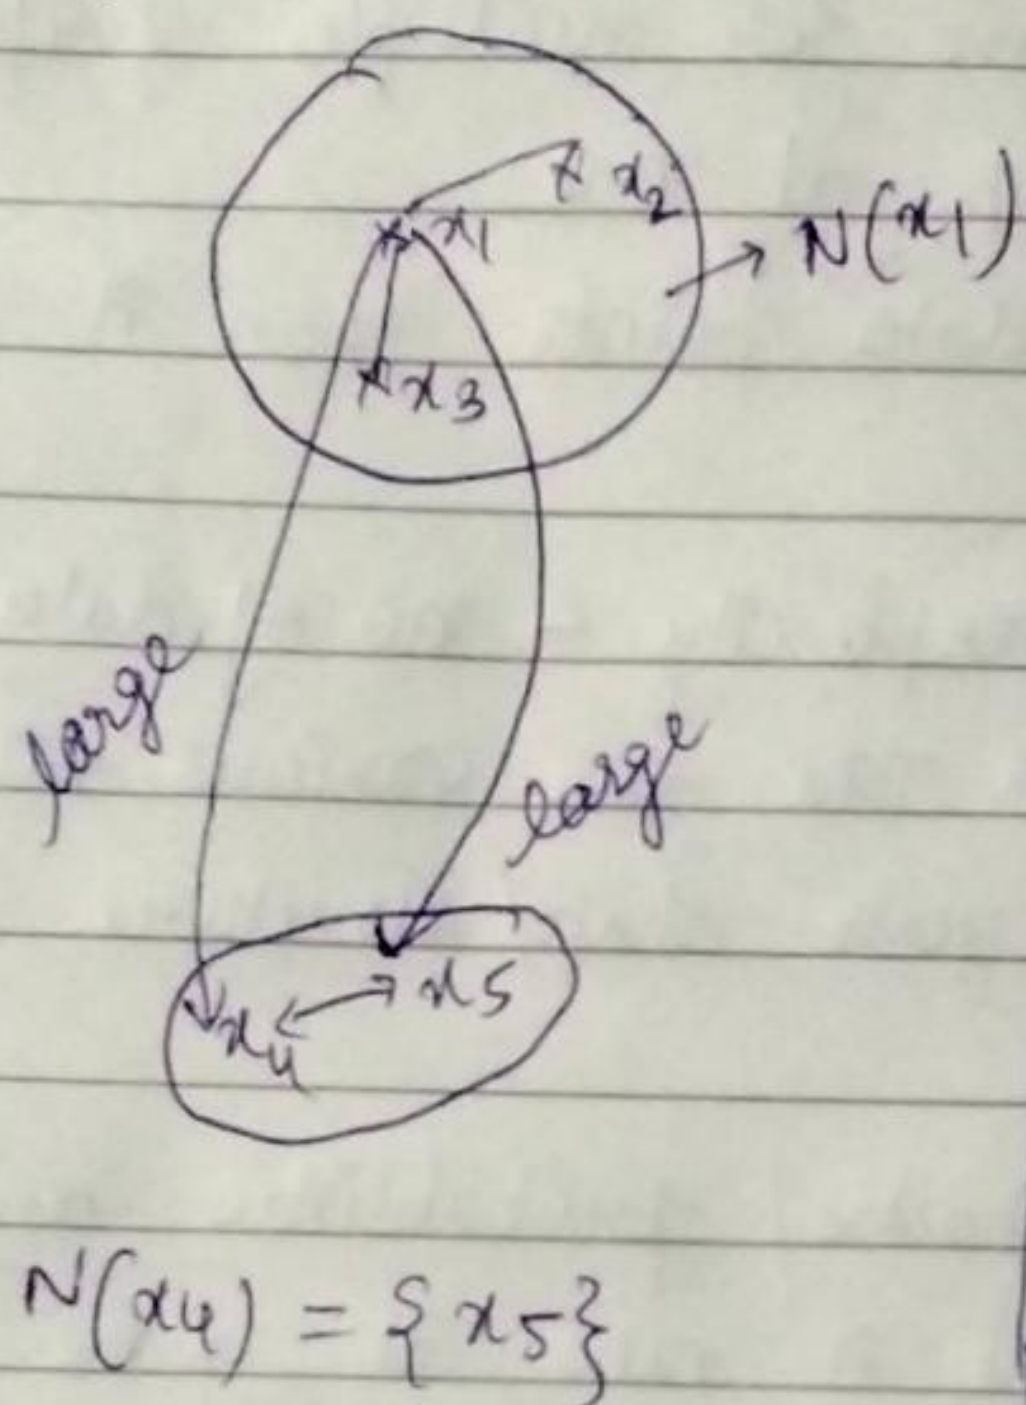 x₂
x₁
N(x₁)
x₃
large
large
x₅
x₄
N(x₄) = {x₅}